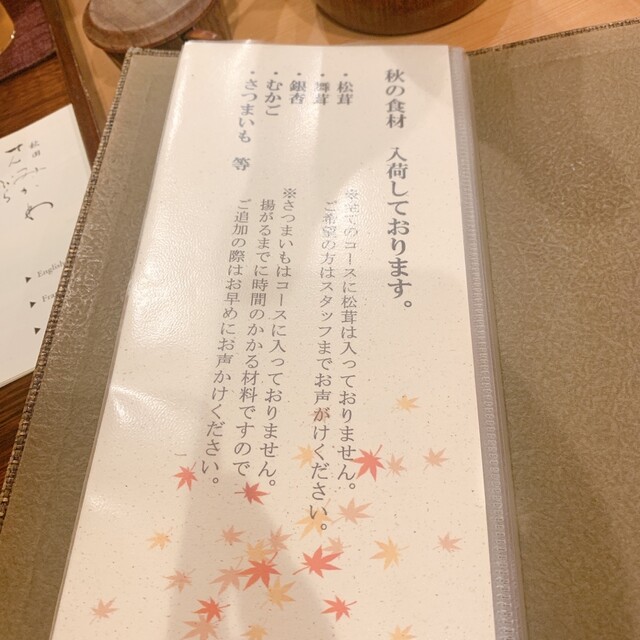 秋の食材　入荷しております。
・松茸
・舞茸
・銀杏
・むかご
・さつまいも　等
※全てのコースに松茸は入っておりません。
ご希望の方はスタッフまでお声がけください。
※さつまいもはコースに入っておりません。
揚がるまでに時間のかかる材料ですので
ご追加の際はお早めにお声かけください。
English